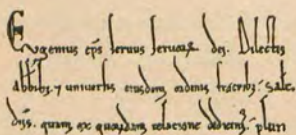 Eugenius eps seruus seruoꝝ dei. Dilectis
abbībꝫ ⁊ uniuersis eiusdem ordinis fratribꝫ. salt̄.
quam ex quorundam relatione